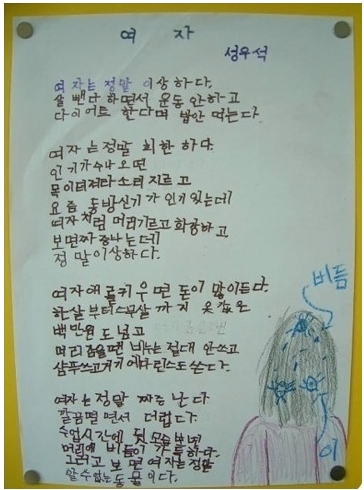 여자
성우석
여자는 정말 이상하다.
살 뺀다 하면서 운동 안하고
다이어트 한다며 밥안 먹는다.
여자는 정말 희한 하다.
인기가수나오면
목이터져라소리지르고
요즘 동방신기가 인기있는데
여자처럼 머리기르고 화장하고
보면짜증나는데
정말이상하다.
여자애를키우면 돈이 많이든다.
한살부터스무살까지 옷값은
백만원도넘고
머리감을땐 비누는 절대 안쓰고
샴푸쓰고거기에다린스도쓴다.
여자는정말 짜증난다
깔끔떨면서 더럽다.
수업시간에 뒷모습보면
머리에 비듬이 가득하다.
그러고 보면 여자는정말
알수없는동물이다.
버듬
이